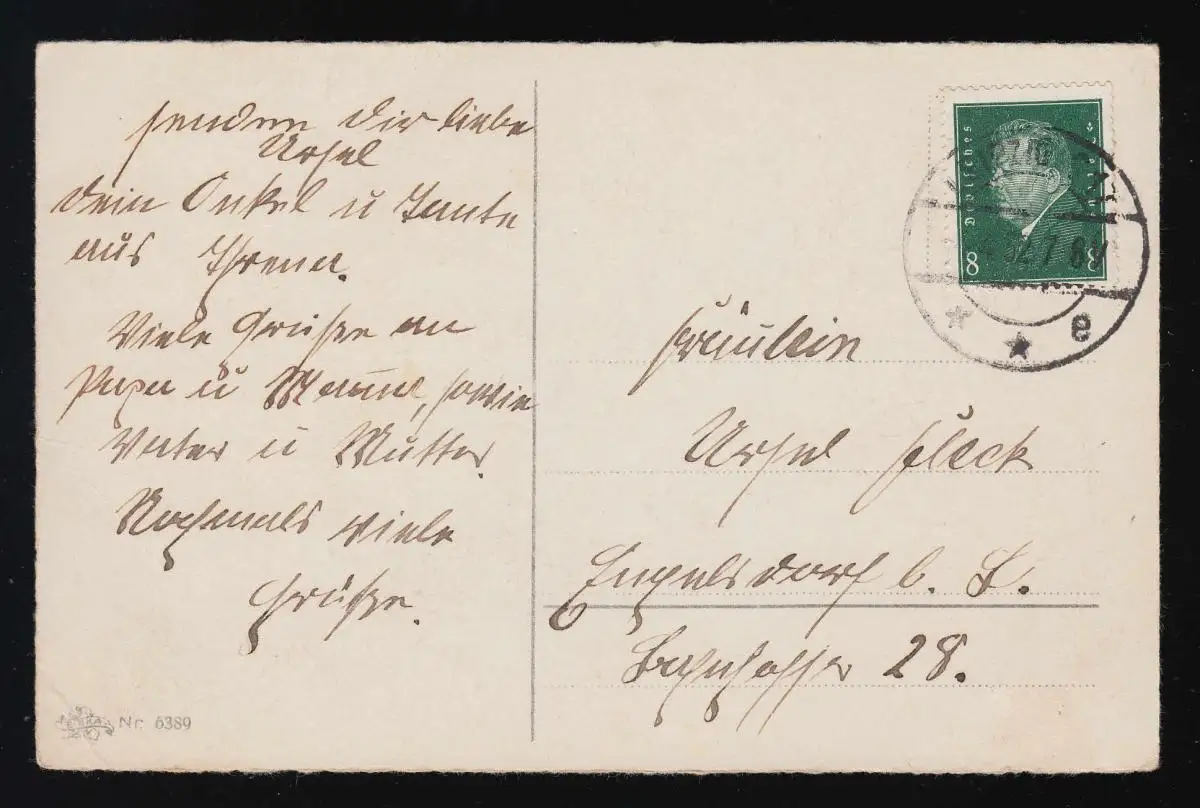 senden dir liebe
Ursel
dein Onkel u Tante
aus Threna.
Viele Grüße an
Papa u Mama, sowie
Vater u Mutter.
Nochmals viele
Grüße.
Nr. 6389
Deutsches Reich
8 8
32.7-8V
e
Fräulein
Ursel Fleck
Engelsdorf b. L.
Bahnhofstr 28.